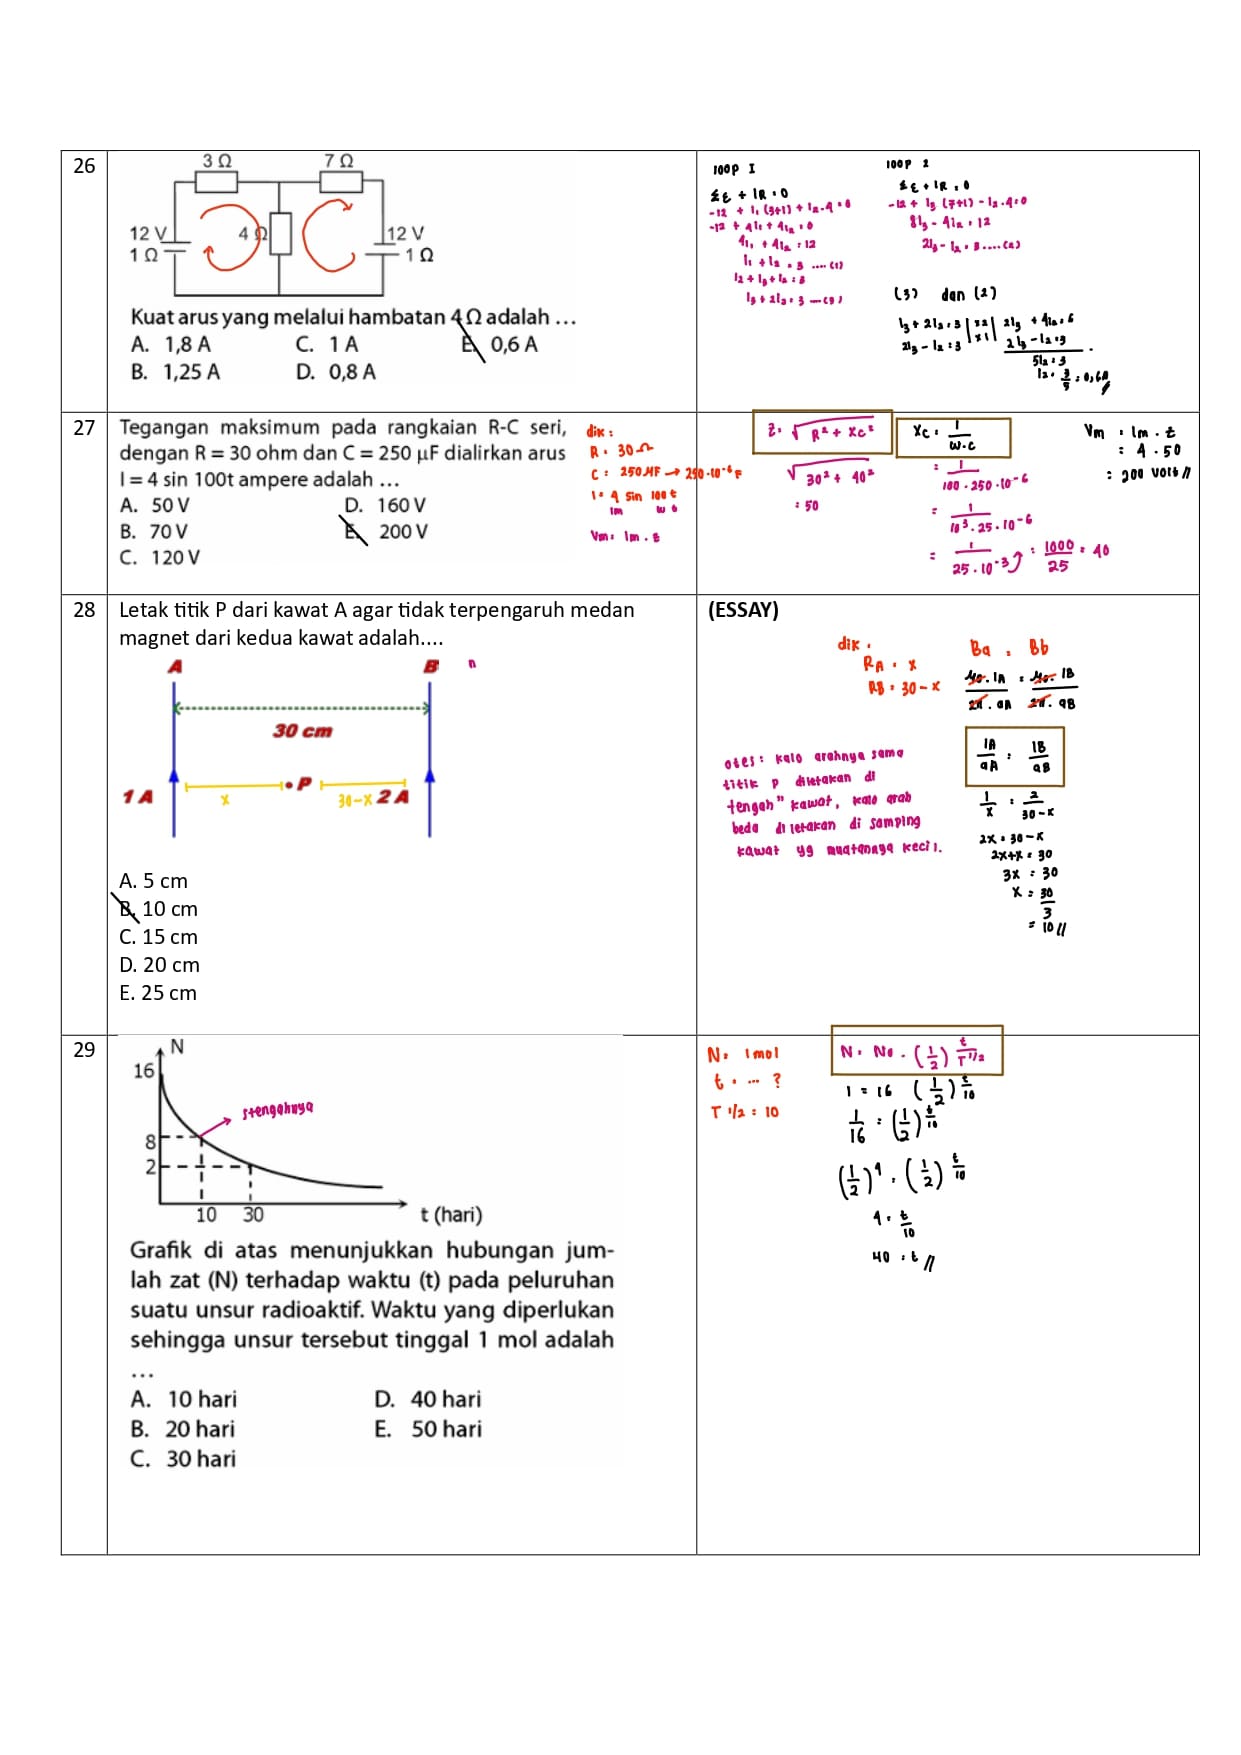 26
3 Ω
7 Ω
12 V
4 Ω
12 V
1 Ω
1 Ω
Kuat arus yang melalui hambatan 4 Ω adalah ...
A. 1,8 A
C. 1 A
E. 0,6 A
B. 1,25 A
D. 0,8 A
loop I
ΣE + IR = 0
-12 + I₁ (3+1) + I₂.4 = 0
-12 + 4I₁ + 4I₂ = 0
4I₁ + 4I₂ = 12
I₁ + I₂ = 3 .... (1)
I₂ + I₃ + I₂ = 3
I₃ + 2I₂ = 3 — (3)
loop 2
ΣE + IR = 0
-12 + I₃ (7+1) - I₂.4=0
8I₃ - 4I₂ = 12
2I₃ - I₂ = 3 .... (2)
(3) dan (2)
I₃ + 2I₂ = 3 | x2 | 2I₃ + 4I₂ = 6
2I₃ - I₂ = 3 | x1 | 2I₃ - I₂ = 3
5I₂ = 3
I₂ = 3/5 = 0,6A
27
Tegangan maksimum pada rangkaian R-C seri,
dengan R = 30 ohm dan C = 250 μF dialirkan arus
I = 4 sin 100t ampere adalah ...
A. 50 V
D. 160 V
B. 70 V
E. 200 V
C. 120 V
dik :
R = 30 Ω
C = 250 MF → 250.10⁻⁶ F
I = 4 sin 100 t
Im ω t
Vm = Im . Z
Z = √R² + Xc²
√30² + 40²
= 50
Xc = 1/ω.C
= 1/100 . 250 . 10⁻⁶
= 1/10³ . 25 . 10⁻⁶
= 1/25 . 10⁻³ = 1000/25 = 40
Vm = Im . Z
= 4 . 50
= 200 Volt //
28
Letak titik P dari kawat A agar tidak terpengaruh medan
magnet dari kedua kawat adalah....
A
B
n
30 cm
P
1 A
x
30-x
2 A
A. 5 cm
B. 10 cm
C. 15 cm
D. 20 cm
E. 25 cm
(ESSAY)
dik :
RA = x
RB = 30 - x
Ba = Bb
μo . IA / 2π . aA = μo . IB / 2π . aB
IA/aA = IB/aB
1/x = 2/30-x
2x = 30 - x
2x+x = 30
3x = 30
x = 30/3
= 10 //
otes : kalo arahnya sama
titik p diletakan di
tengah" kawat, kalo arah
beda diletakan di samping
kawat yg muatannya kecil.
29
N
16
stengahnya
8
2
10
30
t (hari)
Grafik di atas menunjukkan hubungan jum-
lah zat (N) terhadap waktu (t) pada peluruhan
suatu unsur radioaktif. Waktu yang diperlukan
sehingga unsur tersebut tinggal 1 mol adalah
...
A. 10 hari
D. 40 hari
B. 20 hari
E. 50 hari
C. 30 hari
N = 1 mol
t = ... ?
T 1/2 = 10
N = No . (1/2) t/T 1/2
1 = 16 (1/2) t/10
1/16 = (1/2) t/10
(1/2)⁴ = (1/2) t/10
4 = t/10
40 = t //